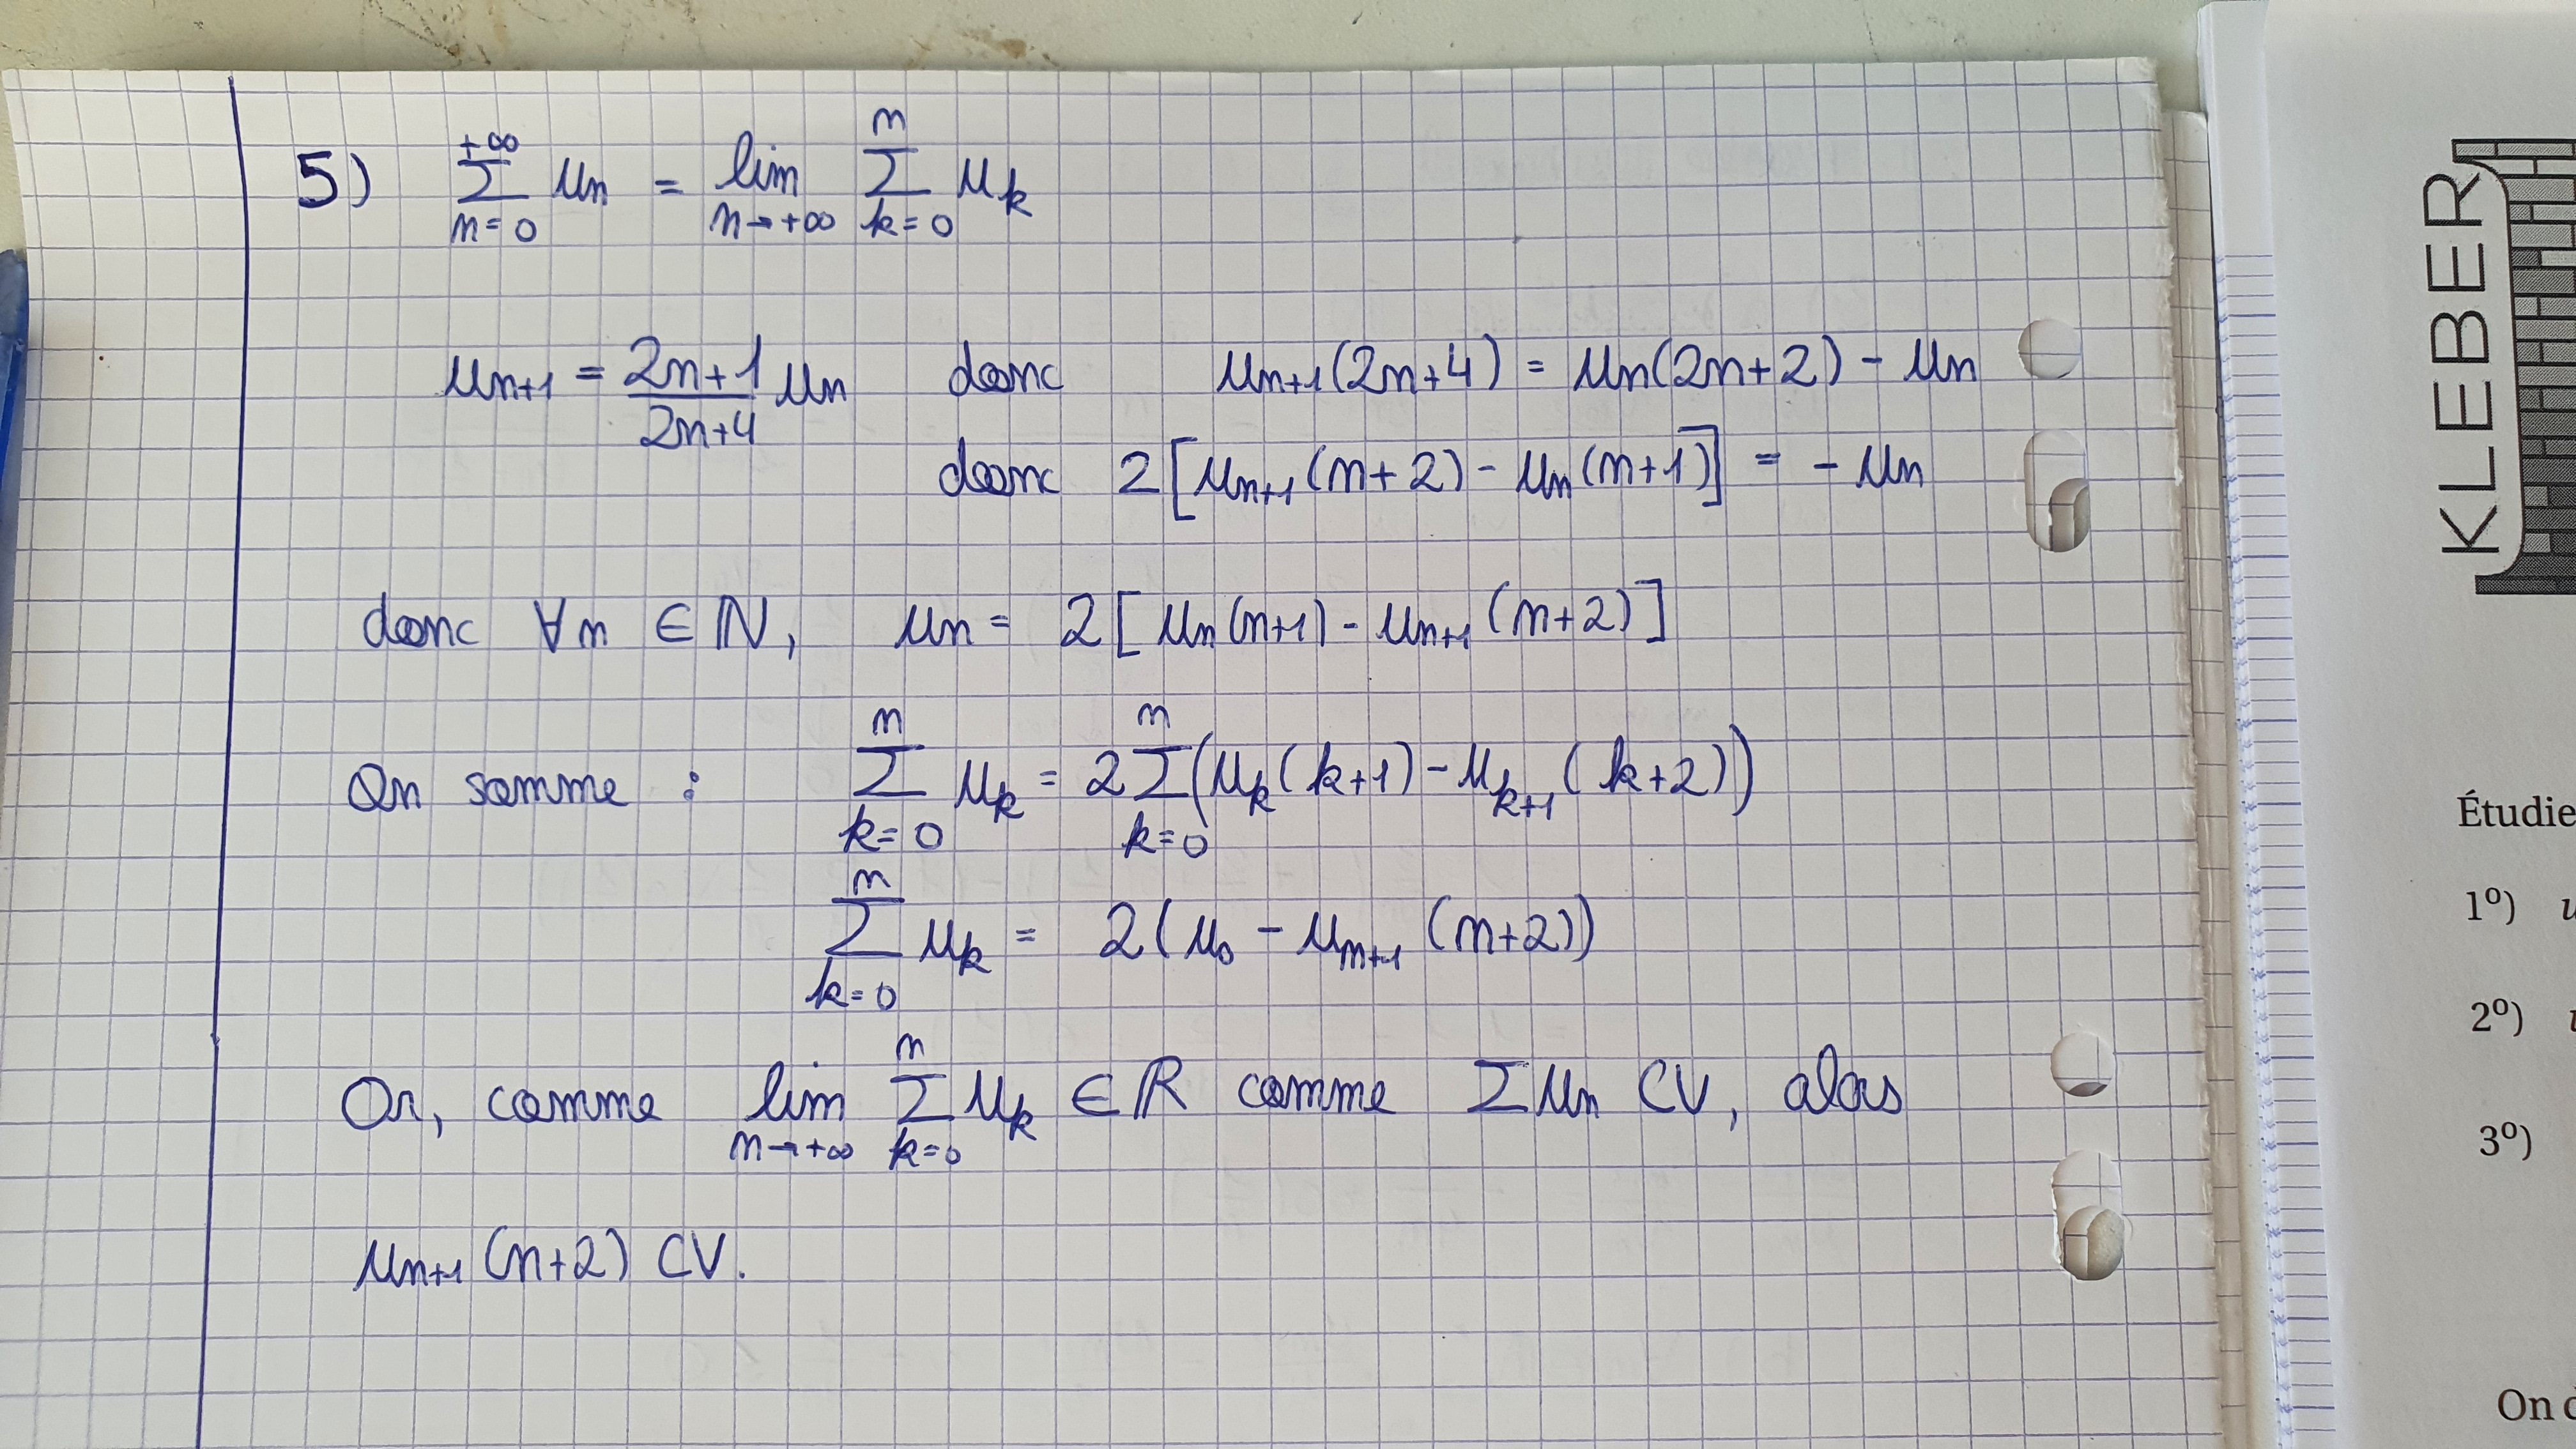 5) $\sum_{n=0}^{+\infty} u_n = \lim_{n \to +\infty} \sum_{k=0}^{n} u_k$
$u_{n+1} = \frac{2n+1}{2n+4} u_n$ donc $u_{n+1}(2n+4) = u_n(2n+2) - u_n$
donc $2[u_{n+1}(n+2) - u_n(n+1)] = -u_n$
donc $\forall n \in \mathbb{N}$, $u_n = 2[u_n(n+1) - u_{n+1}(n+2)]$
On somme : $\sum_{k=0}^{n} u_k = 2\sum_{k=0}^{n} (u_k(k+1) - u_{k+1}(k+2))$
$\sum_{k=0}^{n} u_k = 2(u_0 - u_{n+1}(n+2))$
Or, comme $\lim_{n \to +\infty} \sum_{k=0}^{n} u_k \in \mathbb{R}$ comme $\sum u_n$ CV, alors
$u_{n+1}(n+2)$ CV.
KLEBER
Étudie
1º) u
2º)
3º)
On d